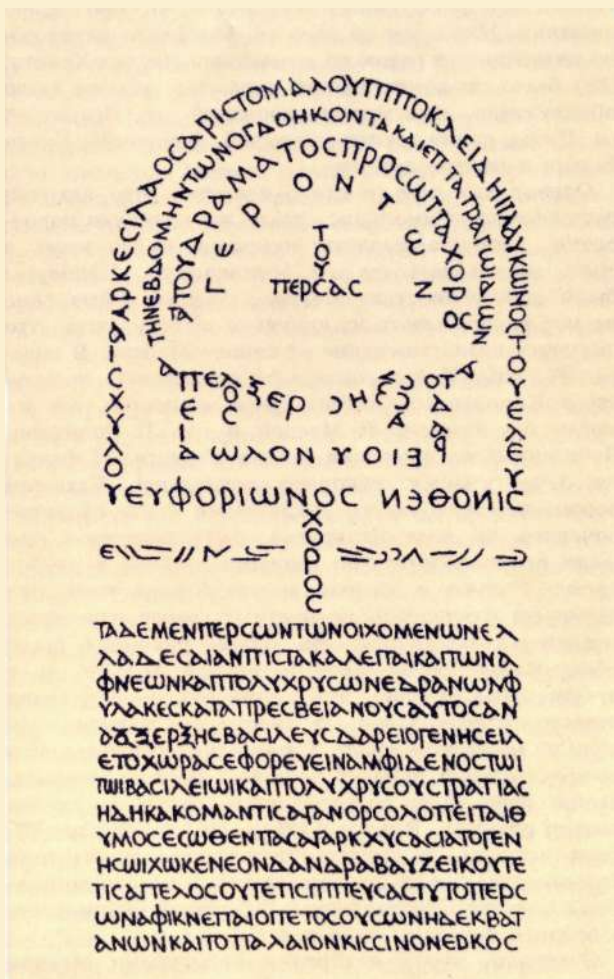 ΤΗΝΕΒΔΟΜΗΝΤΩΝΟΓΔΟΗΚΟΝΤΑΚΑΙΕΠΤΑΤΡΑΓΩΙΔΙΩΝ
ΤΟΥΔΡΑΜΑΤΟϹΠΡΟϹΩΤΑΧΟΡΟϹ
ΓΕΡΟΝΤΩΝ
ΤΟΥϹ
ΠΕΡϹΑϹ
ΥΕΥΦΟΡΙΩΝΟϹ
ΧΟΡΟϹ
ΤΑΔΕΜΕΝΠΕΡϹΩΝΤΩΝΟΙΧΟΜΕΝΩΝΕΛ
ΛΑΔΕϹΑΙΑΝΠΙϹΤΑΚΑΛΕΙΤΑΙΚΑΙΤΩΝΑ
ΦΝΕΩΝΚΑΙΠΟΛΥΧΡΥϹΩΝΕΔΡΑΝΩΝΦ
ΥΛΑΚΕϹΚΑΤΑΠΡΕϹΒΕΙΑΝΟΥϹΑΥΤΟϹΑΝ
ΑΞΞΕΡΞΗϹΒΑϹΙΛΕΥϹΔΑΡΕΙΟΓΕΝΗϹΕΙΛ
ΕΤΟΧΩΡΑϹΕΦΟΡΕΥΕΙΝΑΜΦΙΔΕΝΟϹΤΩΙ
ΤΩΙΒΑϹΙΛΕΙΩΙΚΑΙΠΟΛΥΧΡΥϹΟΥϹΤΡΑΤΙΑϹ
ΗΔΗΚΑΚΟΜΑΝΤΙϹΑΓΑΝΟΡϹΟΛΟΠΕΙΤΑΙΘ
ΥΜΟϹΕϹΩΘΕΝΠΑϹΑΓΑΡΚΧΥϹΑϹΙΑΤΟΓΕΝ
ΗϹΩΙΧΩΚΕΝΕΟΝΔΑΝΔΡΑΒΑΥΖΕΙΚΟΥΤΕ
ΤΙϹΑΓΓΕΛΟϹΟΥΤΕΤΙϹΙΠΠΕΥϹΑϹΤΥΤΟΠΕΡϹ
ΩΝΑΦΙΚΝΕΙΤΑΙΟΙΤΕΤΟϹΟΥϹΩΝΗΔΕΚΒΑΤ
ΑΝΩΝΚΑΙΤΟΠΑΛΑΙΟΝΚΙϹϹΙΝΟΝΕΔΚΟϹ